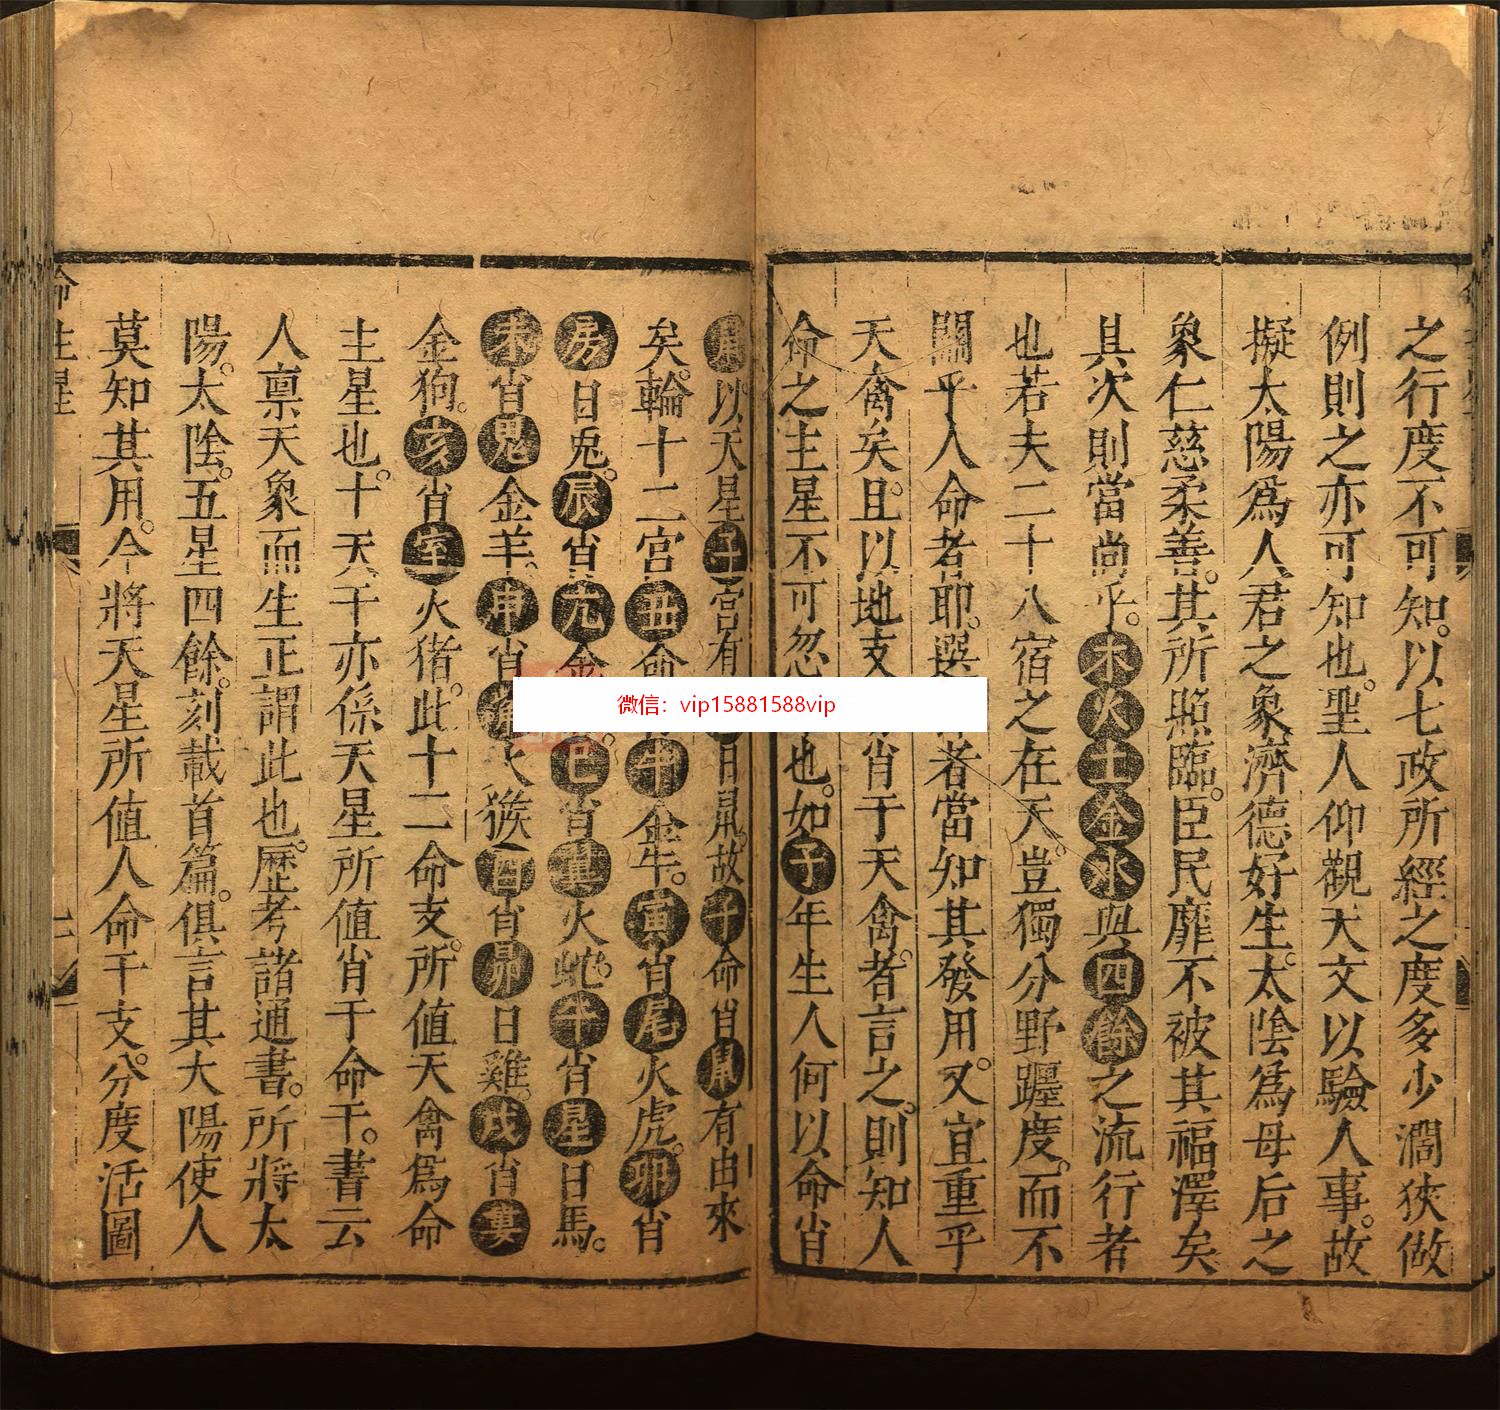 之行度不可知。以七政所經之度多少濶狹做
例則之亦可知也。聖人仰觀天文以驗人事。故
擬太陽爲人君之象濟德好生。太陰爲母后之
象仁慈柔善。其所照臨。臣民靡不被其福澤矣
其次則當尚乎。木火土金水與四餘之流行者
也若夫二十八宿之在天。豈獨分野躔度。而不
關乎人命者耶。選 者當知其發用。又宜重乎
天禽矣。且以地支 肖于天禽。者言之。則知人
命之主星不可忽 也。如子年生人何以命肖
以天星子宮有 日鼠。故子命肖鼠有由來
矣。輪十二宮丑命 牛金牛。寅肖尾火虎。卯肖
房日兎。辰肖亢金 巳肖 火蛇。午肖星日馬。
未肖鬼金羊。申肖 火猴酉肖昴日雞。戌肖婁
金狗。亥肖室火猪。此十二命支。所值天禽爲命
主星也。十天干亦係天星所值肖于命干。書云
人禀天象而生正謂此也。歷考諸通書。所將太
陽。太陰。五星四餘。刻載首篇。俱言其大陽使人
莫知其用。今將天星所值人命干支。分度活圖
命主星
微信：vip15881588vip